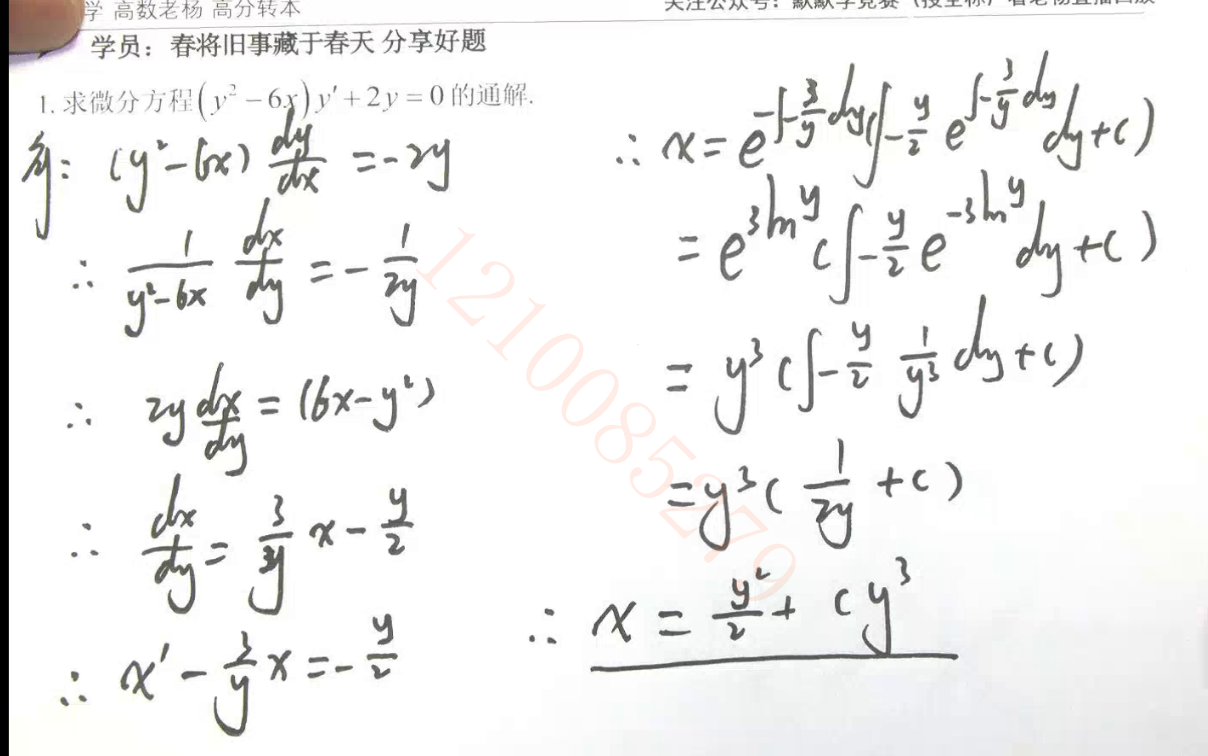 学 高数老杨 高分转本
学员：春将旧事藏于春天 分享好题
1. 求微分方程(y² − 6x)y′ + 2y = 0 的通解.
(y²−6x) dy/dx = −2y
∴ 1/(y²−6x) dx/dy = −1/(2y)
∴ 2y dx/dy = (6x−y²)
∴ dx/dy = 3/y x − y/2
∴ x′ − 3/y x = −y/2
∴ x = e^(−∫−3/y dy) (∫−y/2 e^(∫−3/y dy) dy + c)
= e^(3lny) (∫−y/2 e^(−3lny) dy + c)
= y³ (∫−y/2 1/y³ dy + c)
= y³ (1/(2y) + c)
∴ x = y²/2 + cy³
1210085279